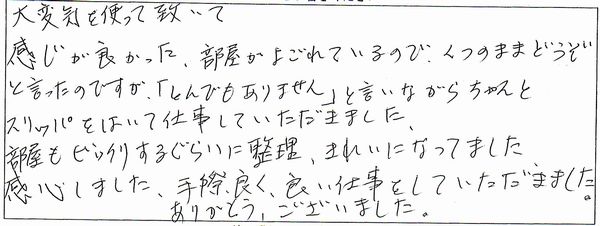 大変気を使って致いて
感じが良かった、部屋がよごれているので、くつのままどうぞ
と言ったのですが、「とんでもありません」と言いながらちゃんと
スリッパをはいて仕事していただきました、
部屋もビックリするぐらいに整理、きれいになってました
感心しました、手際、良く、良い仕事をしていただきました。
ありがとう、ございました。